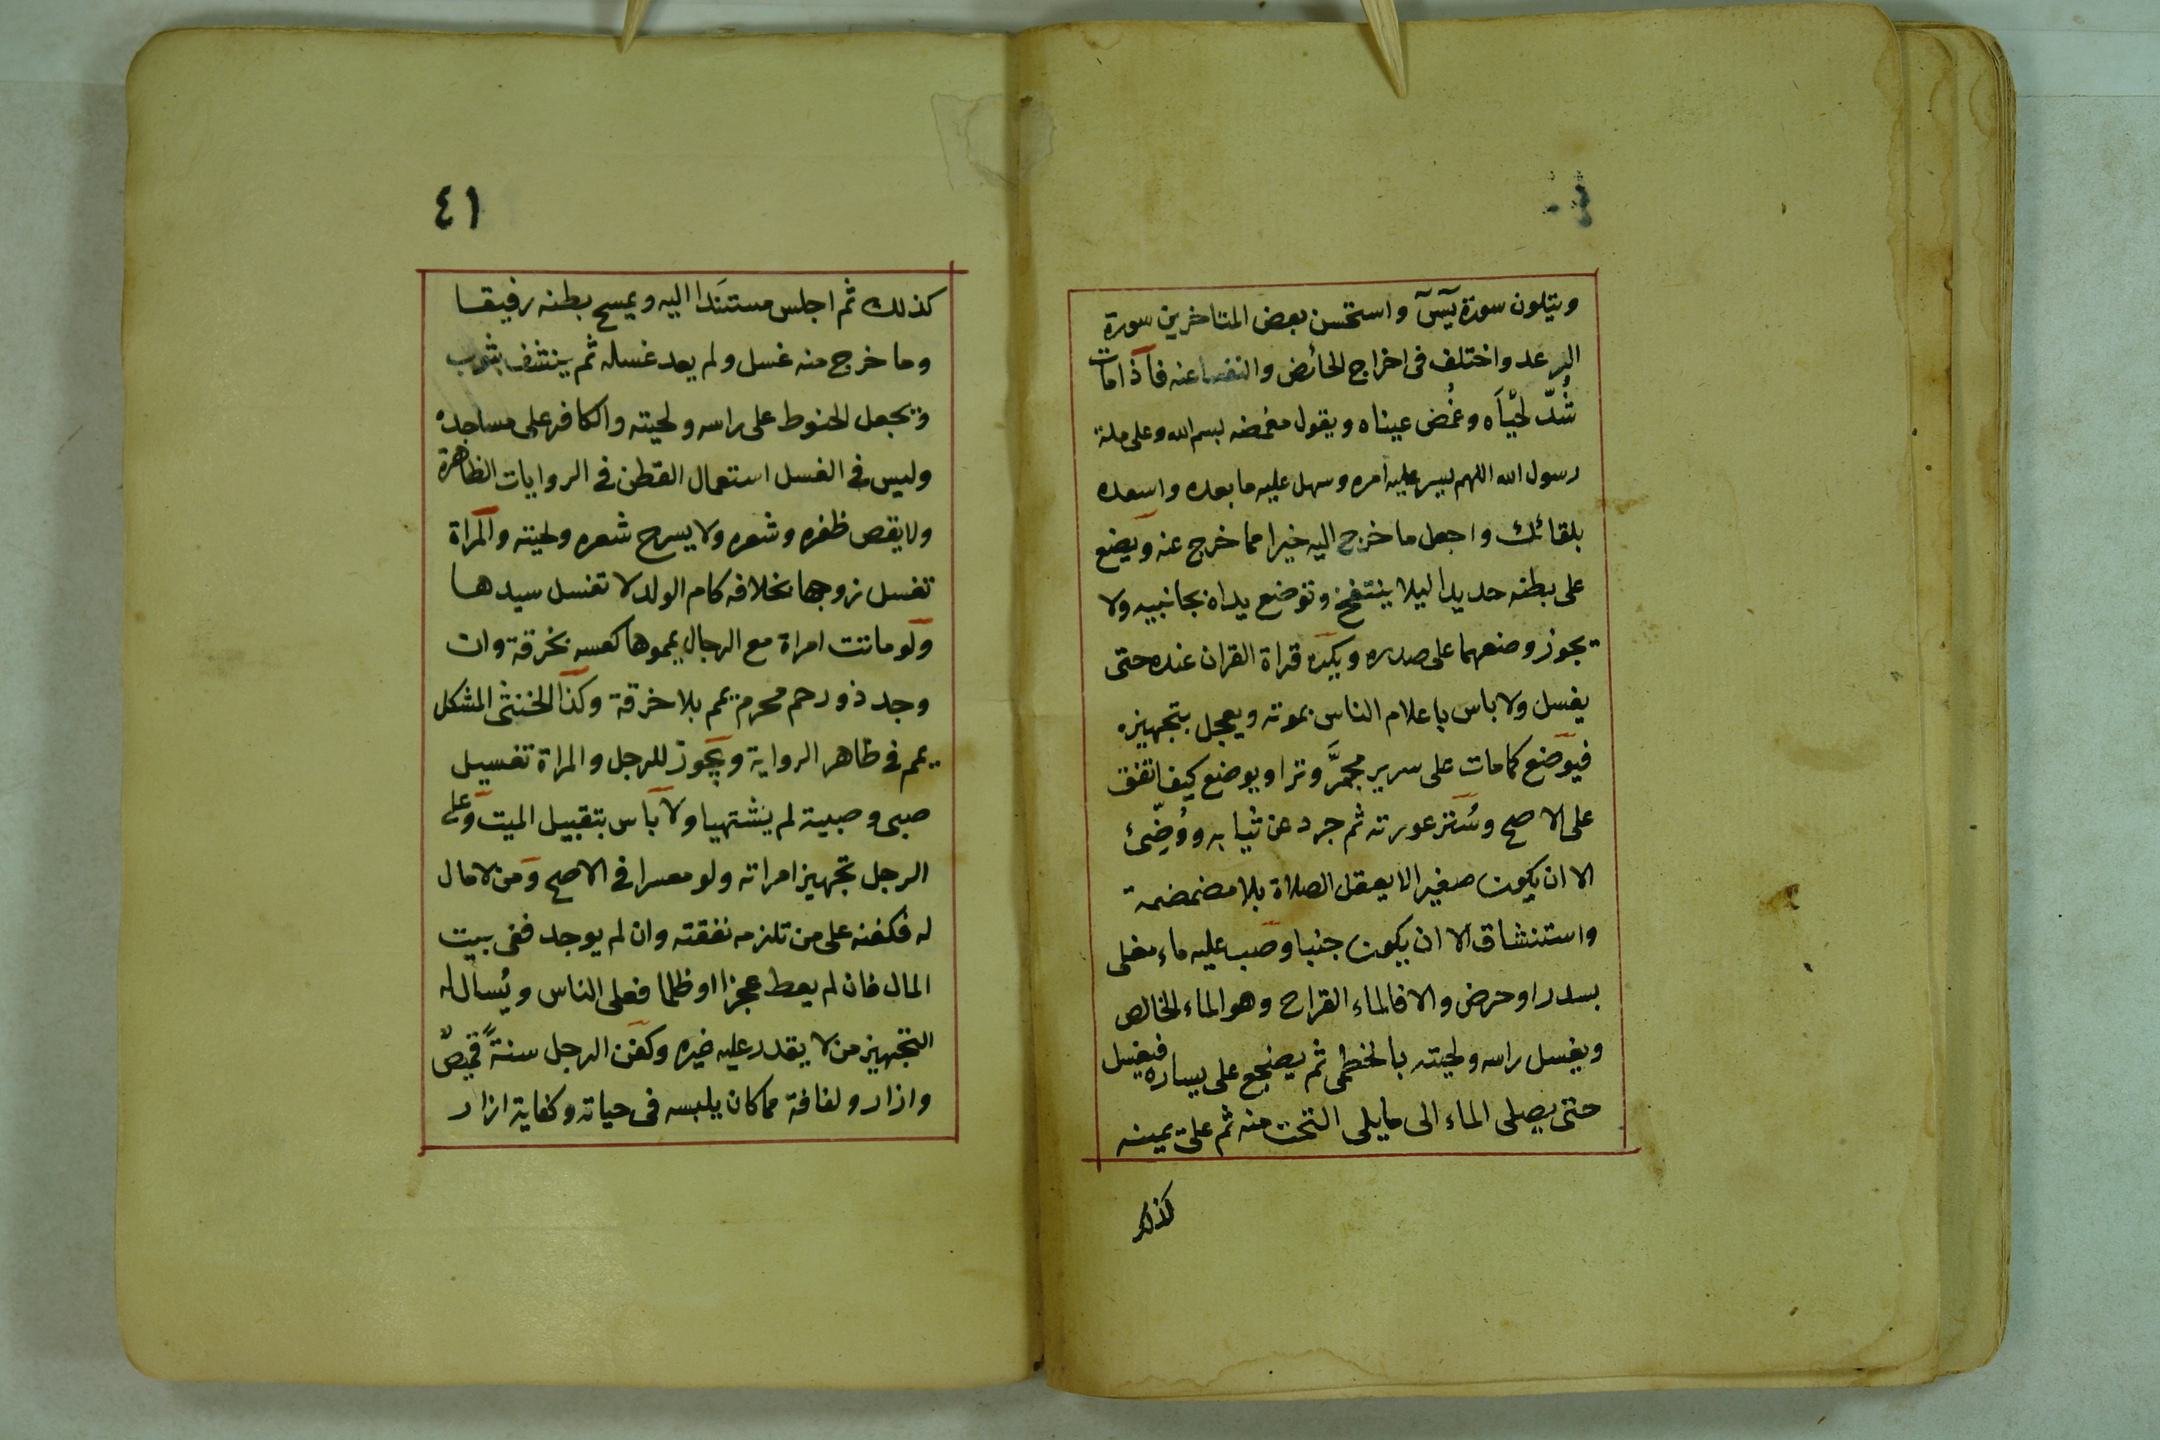 ٤٠
ويتلون سورة يٓسٓ واستحسن بعض المتاخرين سورة
الرعد واختلف فى اخراج الحائض والنفسا عنه فاذا مات
شُدّ لحْيَاه وغُمض عيناه ويقول مغمضه بسم الله وعلى ملة
رسول الله اللهم يسر عليه امره وسهل عليه ما بعده واسعده
بلقائك واجعل ما خرج اليه خيرا مما خرج عنه ويضع
على بطنه حديدا ليلا ينتفخ وتوضع يداه بجانبيه ولا
يجوز وضعهما على صدره ويكره قراة القران عنده حتى
يغسل ولا باس باعلام الناس بموته ويعجل بتجهيزه
فيوضع كما مات على سرير مجمَّر وترا ويوضع كيف اتفق
على الاصح وسُتر عورته ثم جرد عن ثيابه ووُضِّئ
الا ان يكون صغيرا لا يعقل الصلاة بلا مضمضمة
واستنشاق الا ان يكون جنبا وصب عليه ماء مغلى
بسدر او حرض والا فالماء القراح وهو الماء الخالص
ويغسل راسه ولحيته بالخطمى ثم يضجع على يساره فيغسل
حتى يصلى الماء الى ما يلى التحت منه ثم على يمينه
كذلك
٤١
كذلك ثم اجلس مستنَدا اليه ويمسح بطنه رفيقا
وما خرج منه غسل ولم يعد غسله ثم ينشف بثوب
ويجعل الحنوط على راسه ولحيته والكافر على مساجده
وليس فى الغسل استعمال القطن فى الروايات الظاهرة
ولا يقص ظفره وشعره ولا يسرح شعره ولحيته والمراة
تغسل زوجها بخلافه كام الولد لا تغسل سيدها
ولو ماتت امراة مع الرجال يمموها كعسه بخرقة وان
وجد ذو رحم محرم يمم بلا خرقة وكذا الخنثى المشكل
يمم فى ظاهر الرواية ويجوز للرجل والمراة تغسيل
صبى وصبية لم يشتهيا ولا باس بتقبيل الميت وعلى
الرجل تجهيز امراته ولو معسرا فى الاصح ومن لا مال
له فكفنه على من تلزمه نفقته وان لم يوجد ففى بيت
المال فان لم يعط عجزا او ظلما فعلى الناس ويُسال له
التجهيز من لا يقدر عليه غيره وكفن الرجل سنةً قميصٌ
وازار ولفافة مما كان يلبسه فى حياته وكفاية ازار